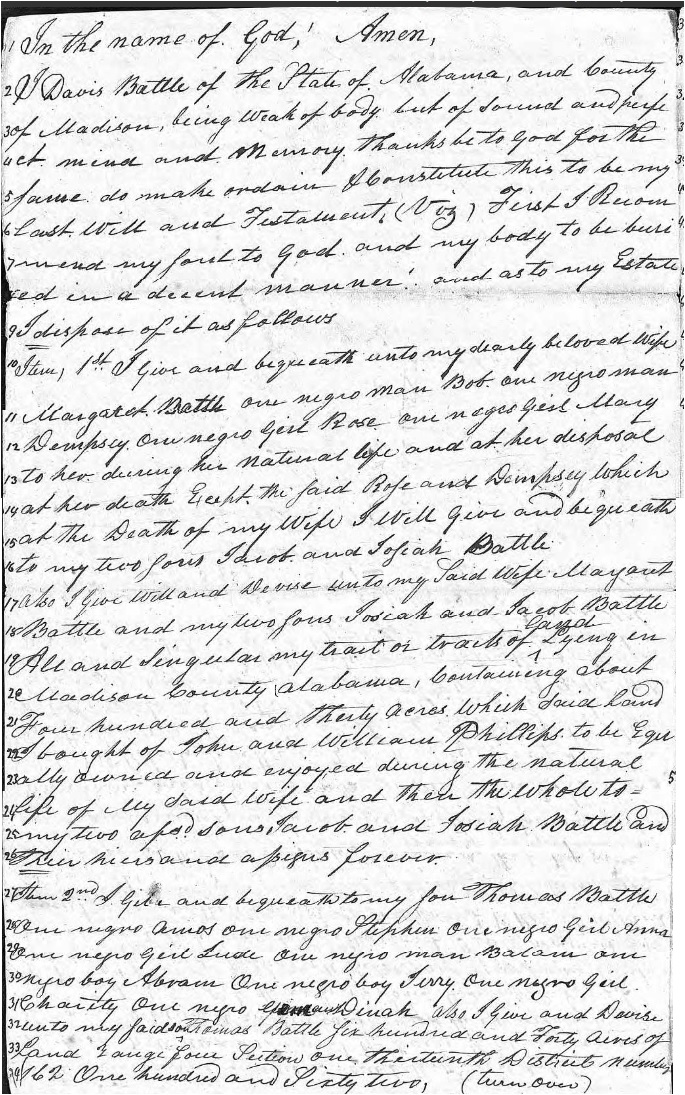 1 In the name of God, Amen,
2 I Davis Battle of the State of Alabama, and County
3 of Madison, being weak of body but of sound and perfe
4 ct mind and Memory thanks be to God for the
5 same do make ordain & Constitute this to be my
6 Last Will and Testament, (Viz) First I Recom
7 mend my soul to God and my body to be buri
8 ed in a decent manner, and as to my Estate
9 I dispose of it as follows
10 Item, 1st I Give and bequeath unto my dearly beloved Wife
11 Margaret Battle one negro man Bob one negro man
12 Dempsey One negro Girl Rose one negro Girl Mary
13 to her during her natural life and at her disposal
14 at her death Except the said Rose and Dempsey which
15 at the Death of my Wife I Will Give and bequeath
16 to my two sons Jacob and Josiah Battle
17 also I Give Will and Devise unto my Said Wife Margaret
18 Battle and my two sons Josiah and Jacob Battle
19 All and Singular my tract or tracts of land Lying in
20 Madison County Alabama, Containing about
21 Four hundred and therty acres which said land
22 I bought of John and William Phillips to be Equ
23 ally owned and enjoyed during the natural
24 life of My said Wife and then the whole to =
25 my two afsd sons, Jacob and Josiah Battle and
26 Their hiers and assigns forever
27 Item 2nd I Give and bequeath to my son Thomas Battle
28 One negro Amos one negro Stephen One negro Girl Anna
29 One negro Girl Lude One negro man Balam one
30 negro boy Abram One negro boy Jerry One negro Girl
31 Charity One negro Dinah also I Give and Devise
32 unto my said son Thomas Battle six hundred and Forty Acres of
33 Land range four Section one thirteenth District number
34 162 One hundred and Sixty two, (turn over)